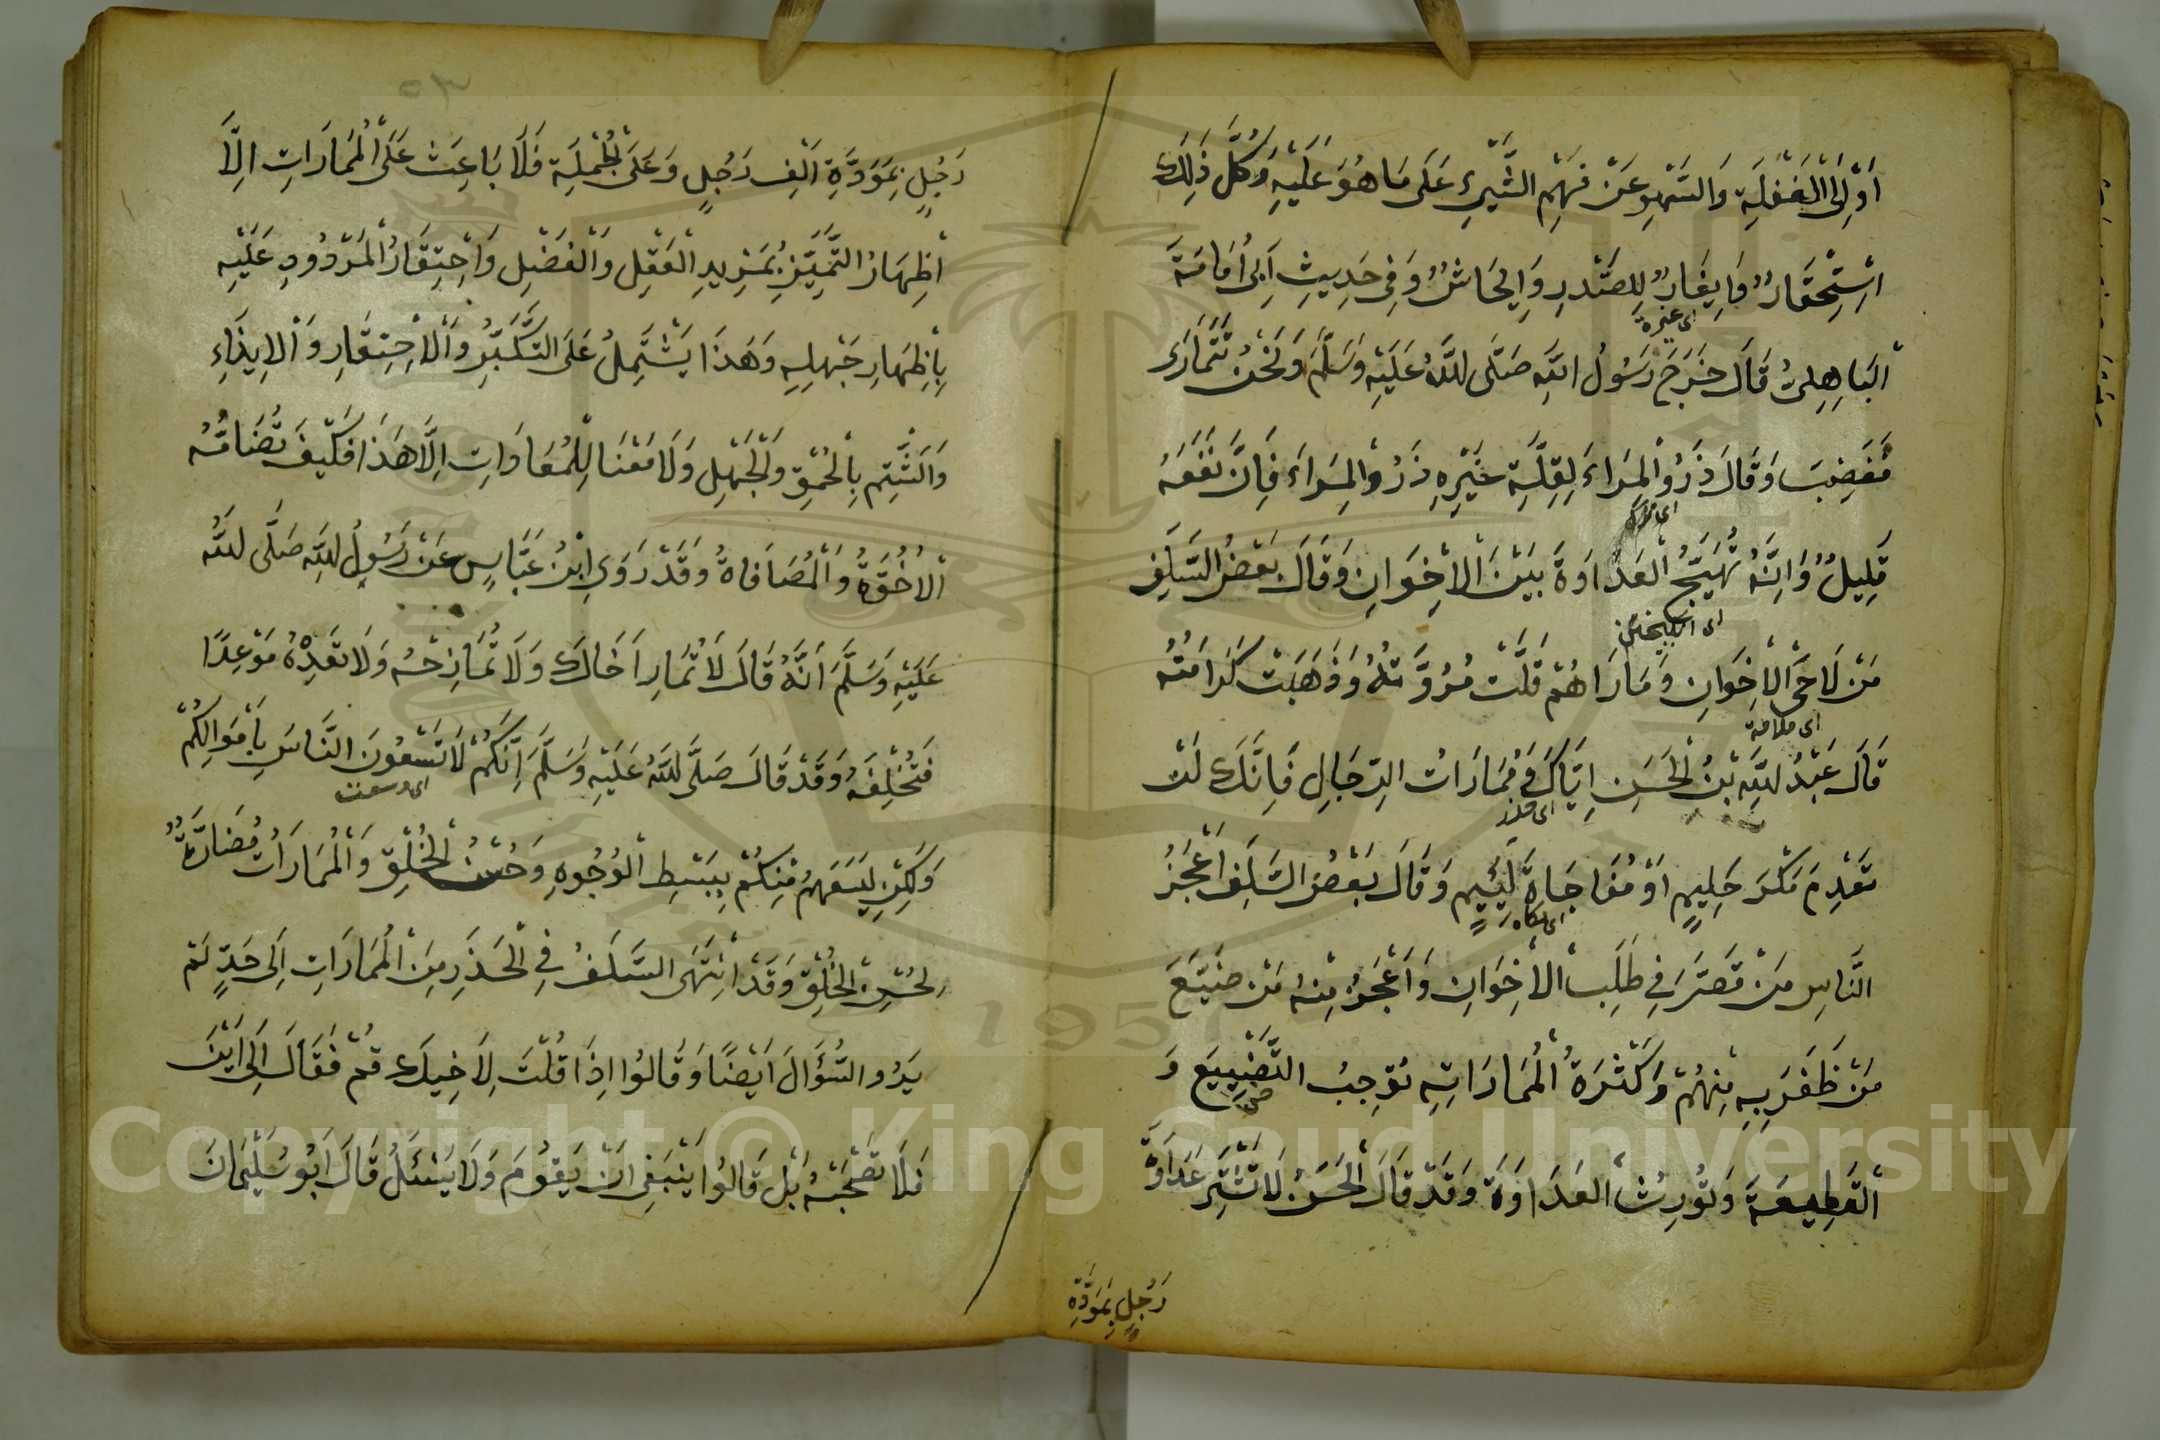 اَوْ اِلَى الْغَفْلَةِ وَالسَّهْوِ عَنْ فَهْمِ الشَّيْءِ عَلَى مَا هُوَ عَلَيْهِ وَكُلُّ ذَلِكَ
اِسْتِحْقَارٌ وَاِيغَارٌ لِلصَّدْرِ وَاِيحَاشٌ وَفِى حَدِيثِ اَبِى اُمَامَةَ
اى غيرة
الْبَاهِلِىُّ قَالَ خَرَجَ رَسُولُ اللّٰهِ صَلَّى اللّٰهُ عَلَيْهِ وَسَلَّمَ وَنَحْنُ نَتَمَارَى
فَغَضِبَ وَقَالَ ذَرُوا الْمِرَاءَ لِقِلَّةِ خَيْرِهِ ذَرُوا الْمِرَاءَ فَاِنَّ نَفَعَهُ
اى
قَلِيلٌ وَاِنَّهُ تُهَيِّجُ الْعَدَاوَةَ بَيْنَ الْاِخْوَانِ وَقَالَ بَعْضُ السَّلَفِ
اى
مَنْ لَاحَى الْاِخْوَانِ وَمَارَاهُمْ قَلَّتْ مُرُوَّتُهُ وَذَهَبَتْ كَرَامَتُهُ
اى ملامة
قَالَ عَبْدُ اللّٰهِ بْنُ الْحَسَنِ اِيَّاكَ وَمُمَارَاتُ الرِّجَالِ فَاِنَّكَ لَنْ
اى
تَعْدِمَ مَكْرَ حَلِيمٍ اَوْ مُفَاجَاةَ لَئِيمٍ وَقَالَ بَعْضُ السَّلَفِ اَعْجَزُ
اى
النَّاسِ مَنْ قَصَّرَ فِى طَلَبِ الْاِخْوَانِ وَاَعْجَزُ مِنْهُ مَنْ ضَيَّعَ
مَنْ ظَفَرَ بِهِ مِنْهُمْ وَكَثْرَةُ الْمُمَارَاتِهِ تُوْجِبُ التَّضْيِيعَ وَ
الْقَطِيعَةَ وَتُورِثُ الْعَدَاوَةَ وَقَدْ قَالَ الْحَسَنُ لَا تَشْتَرِ عَدَاوَةَ
رَجُلٍ بِمَوَدَّةِ
٥٣
رَجُلٍ بِمَوَدَّةِ اَلْفِ رَجُلٍ وَعَلَى الْجُمْلَةِ فَلَا بَاعِثَ عَلَى الْمُمَارَاتِ اِلَّا
اِظْهَارُ التَّمَيُّزِ بِمَزِيدِ الْعَقْلِ وَالْفَضْلِ وَاحْتِقَارُ الْمَرْدُودِ عَلَيْهِ
بِاِظْهَارِ جَهْلِهِ وَهَذَا يَشْتَمِلُ عَلَى التَّكَبُّرِ وَالْاِحْتِقَارِ وَالْاِيذَاءِ
وَالشَّتْمِ بِالْحُمْقِ وَالْجَهْلِ وَلَا مَعْنَا لِلْمُعَادَاتِ اِلَّا هَذَا فَكَيْفَ تُضَامُّهُ
الْاُخُوَّةُ وَالْمُصَافَاةُ وَقَدْ رَوَى ابْنُ عَبَّاسٍ عَنْ رَسُولُ اللّٰهِ صَلَّى اللّٰهُ
عَلَيْهِ وَسَلَّمَ اَنَّهُ قَالَ لَا تُمَارِ اَخَاكَ وَلَا تُمَازِحْهُ وَلَا تَعِدْهُ مَوْعِدًا
فَتُخْلِفَهُ وَقَدْ قَالَ صَلَّى اللّٰهُ عَلَيْهِ وَسَلَّمَ اِنَّكُمْ لَا تَسْعُونَ النَّاسَ بِاَمْوَالِكُمْ
اى وسعت
وَلَكِنْ لِيَسَعَهُمْ مِنْكُمْ بِبَسْطِ الْوُجُوهِ وَحُسْنُ الْخُلْقِ وَالْمُمَارَاتُ مُضَارَّةٌ
لِحُسْنِ الْخُلْقِ وَقَدْ اِنْتَهَى السَّلَفُ فِى الْحَذَرِ مِنَ الْمُمَارَاتِ اِلَى حَدٍّ لَمْ
يَرَوُا السُّؤَالَ اَيْضًا وَقَالُوا اِذَا قُلْتَ لِاَخِيكَ قُمْ فَقَالَ اِلَى اَيْنَ
فَلَا تَصْحَبْهُ بَلْ قَالُوا يَنْبَغِى اَنْ يَقُومَ وَلَا يَسْئَلُ قَالَ اَبُو سُلَيْمَانَ
Copyright © King Saud University
1957